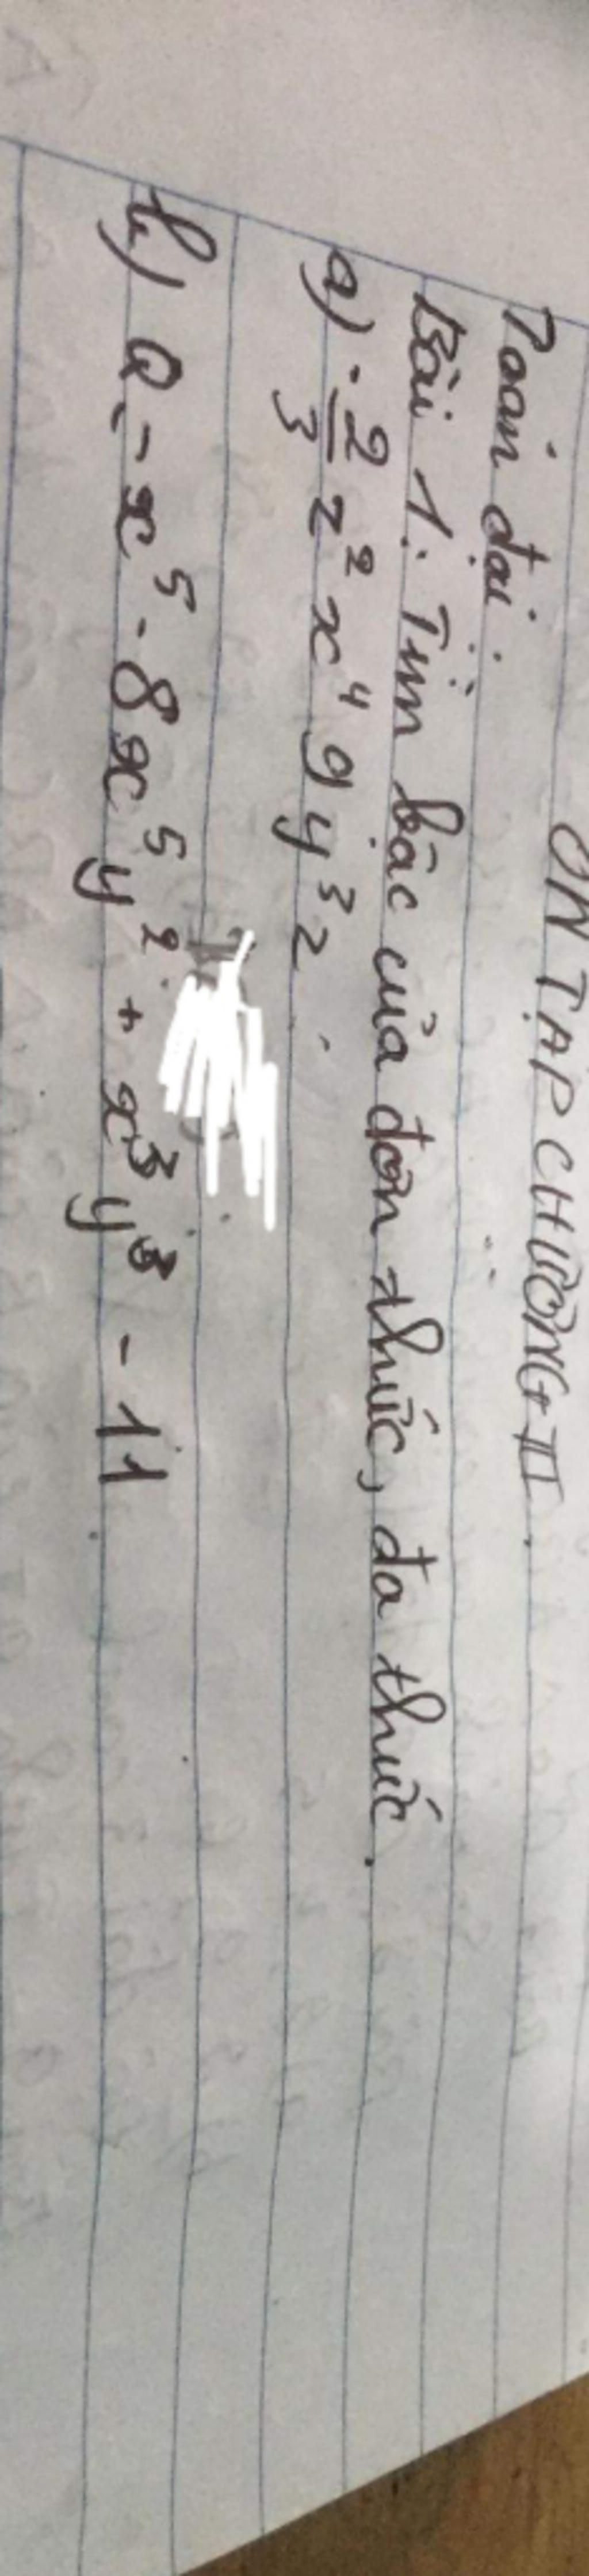 ÔN TẬP CHƯƠNG II.
Toán đại:
Bài 1: Tìm bậc của đơn thức, đa thức.
a) -2/3 z² x⁴ 9 y³ z
b) Q = x⁵ - 8x⁵y² + x³y³ - 11